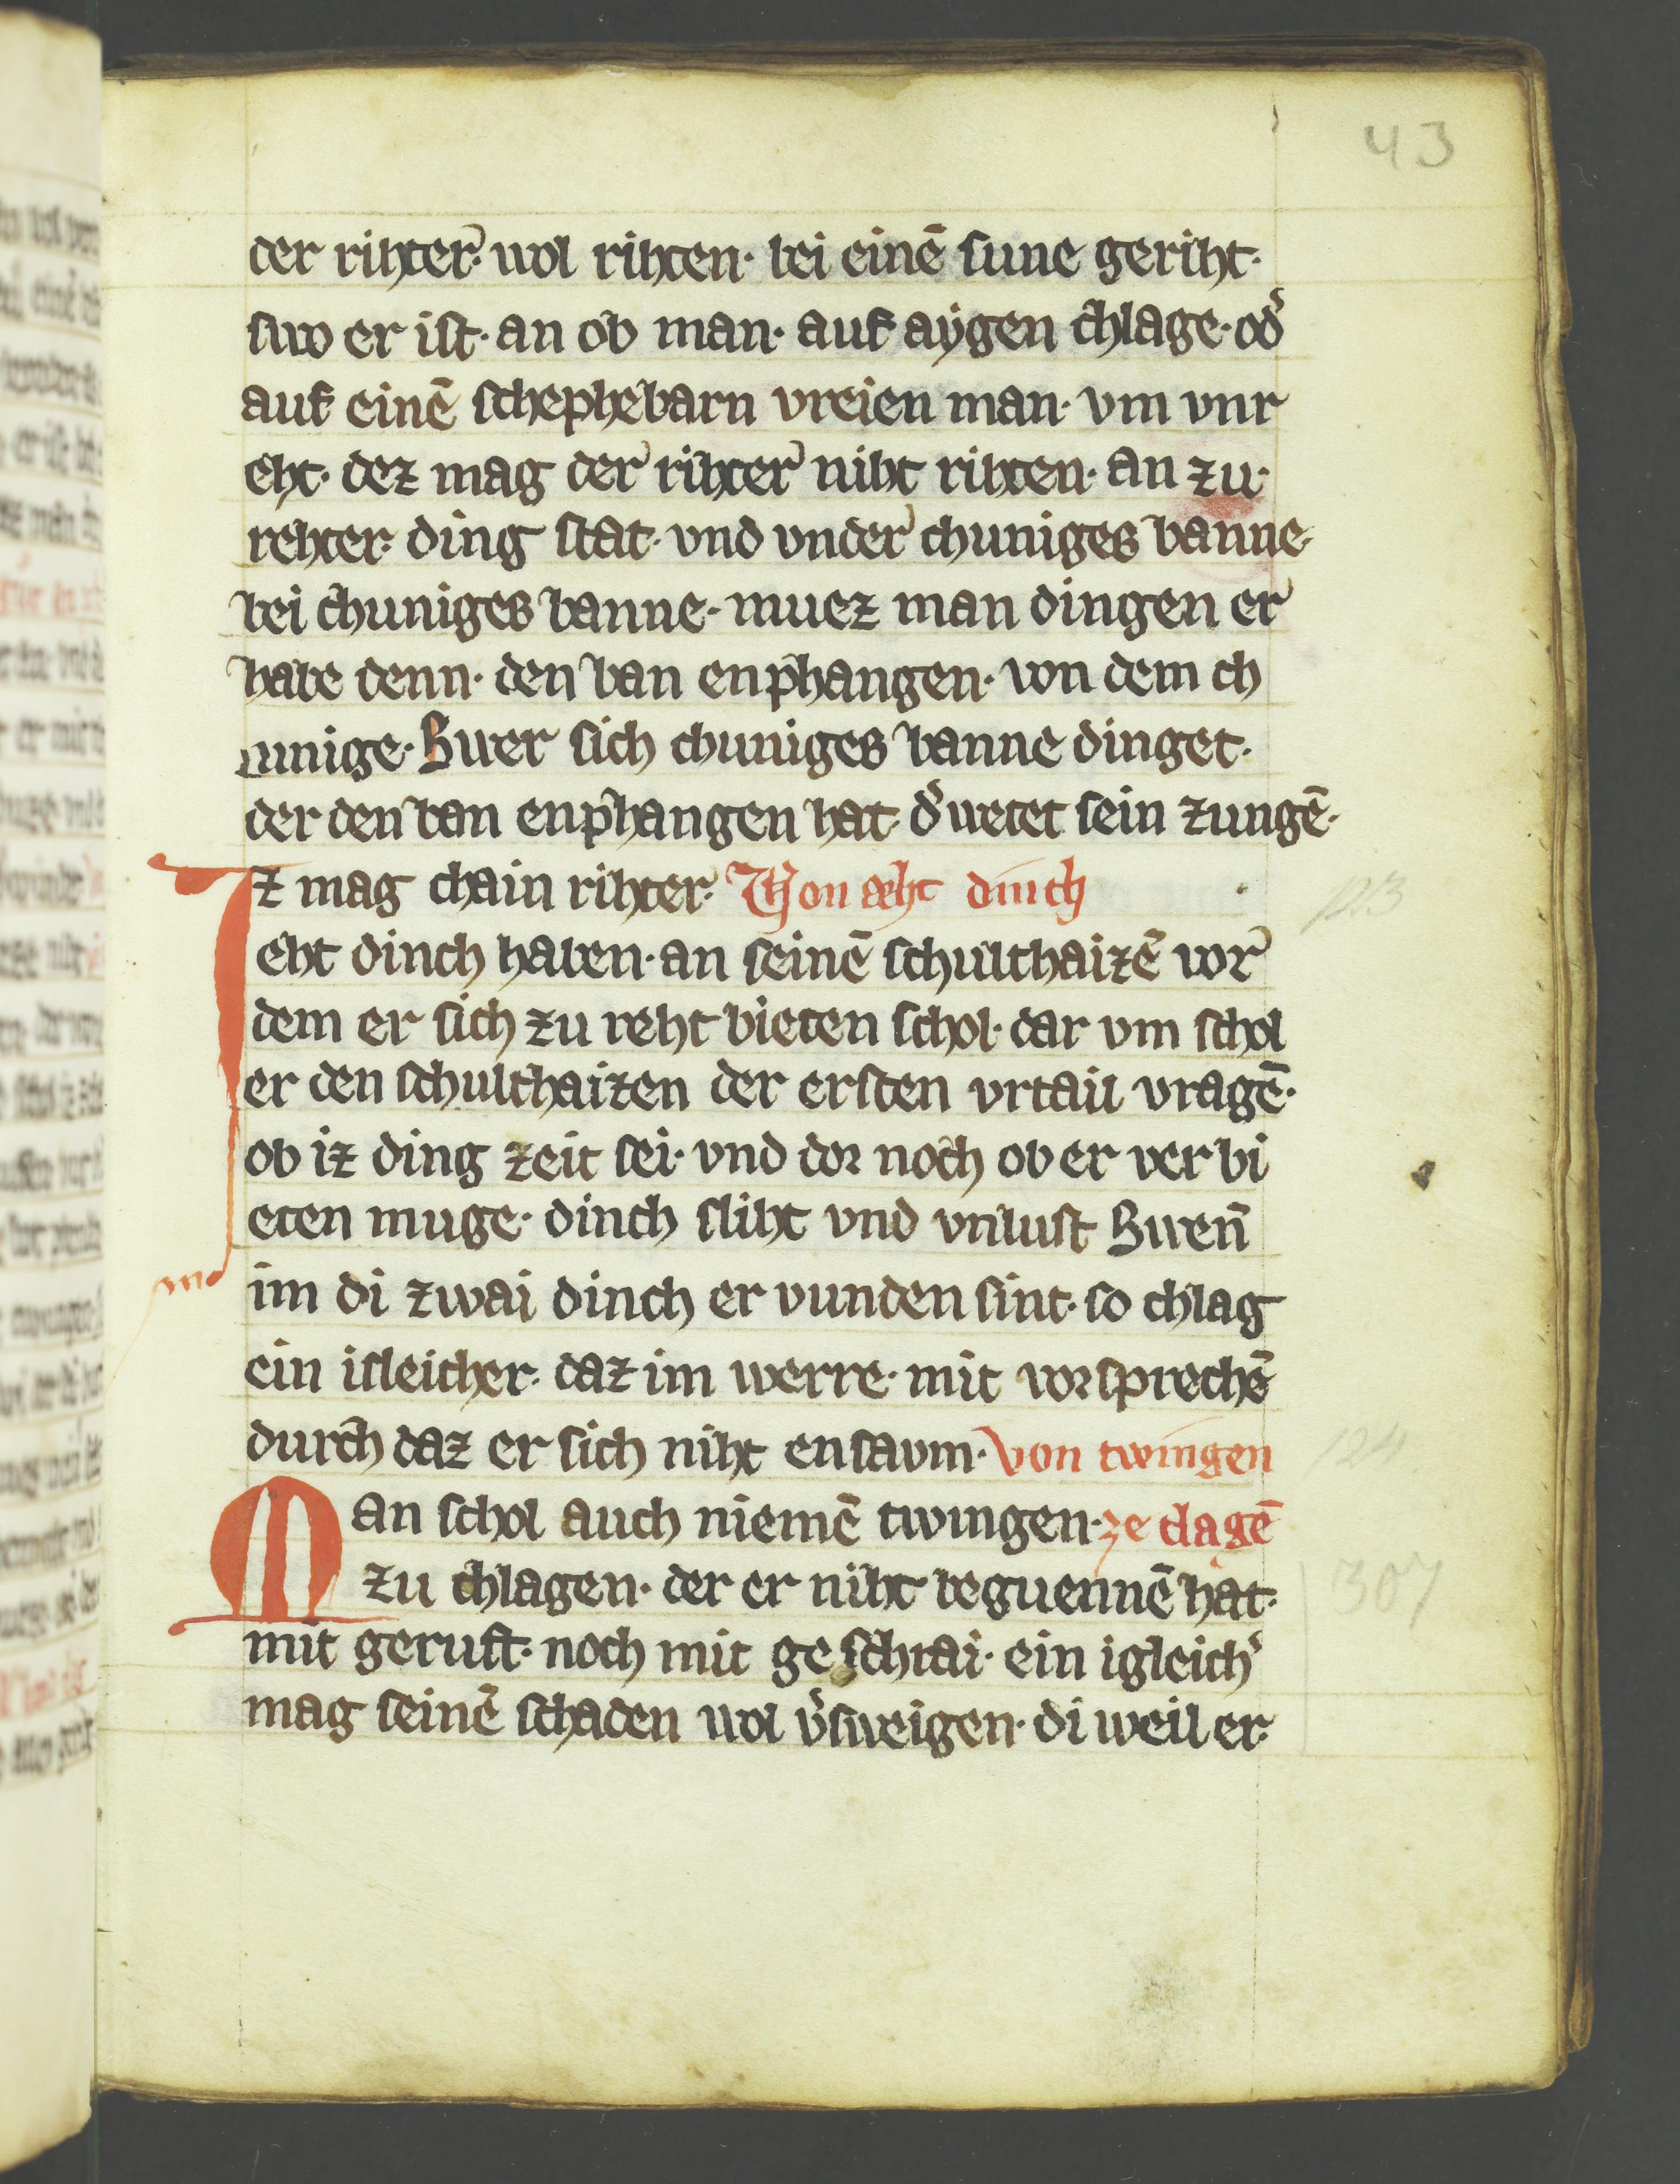 43
der rihter· wol rihten· bei einē sune geriht·
swo er ist· an ob man· auf aygen chlage· od̾
auf einē schephebarn vreien man· vm vnr
eht· dez mag der rihter niht rihten· an zu·
rehter· ding stat· vnd vnder chuniges banne·
bei chuniges banne· muez man dingen er
habe denn· den ban enphangen· von dem ch
unige· Swer sich chuniges banne dinget·
der den ban enphangen hat· d̾ wetet sein zungē·
Iz mag chain rihter· Von æht dinch
123
eht dinch haben· an seinē schulthaizē vor
dem er sich zu reht bieten schol· dar vm schol
er den schulthaizen der ersten vrtail vragē·
ob iz ding zeit sei· vnd dor noch ob er ver bi
eten muge· dinch sliht vnd vnlust Swen̄
im di zwai dinch er vunden sint· so chlag
ein isleicher· daz im werre· mit vorsprechē
durch daz er sich niht ensavm· von twingen
124
Man schol auch niemē twingen· ze clagē
zu chlagen· der er niht beguennē hat·
307
mit geruft· noch mit geschrai· ein igleich̾
mag seinē schaden wol v̾sweigen· di weil er·